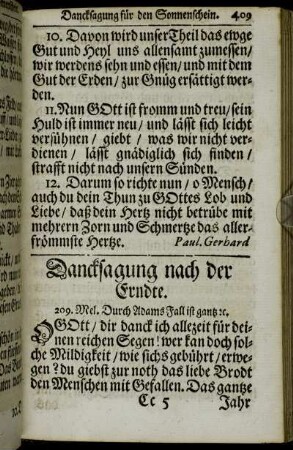 Dancksagung für den Sonnenschein. 409
10. Davon wird unser Theil das ewge
Gut und Heyl uns allensamt zumessen/
wir werdens sehn und essen/ und mit dem
Gut der Erden/ zur Gnüg ersättigt wer-
den.
11. Nun GOtt ist fromm und treu/ sein
Huld ist immer neu/ und lässt sich leicht
versühnen/ giebt/ was wir nicht ver-
dienen/ lässt gnädiglich sich finden/
strafft nicht nach unsern Sünden.
12. Darum so richte nun/ o Mensch/
auch du dein Thun zu GOttes Lob und
Liebe/ daß dein Hertz nicht betrübe mit
mehrern Zorn und Schmertze das aller-
frömmste Hertze. Paul. Gerhard
Dancksagung nach der
Erndte.
209. Mel. Durch Adams Fall ist gantz ꝛc.
O GOtt/ dir danck ich allezeit für dei-
nen reichen Segen! wer kan doch sol-
che Mildigkeit/ wie sichs gebührt/ erwe-
gen? du giebst zur noth das liebe Brodt
den Menschen mit Gefallen. Das gantze
Cc 5 Jahr